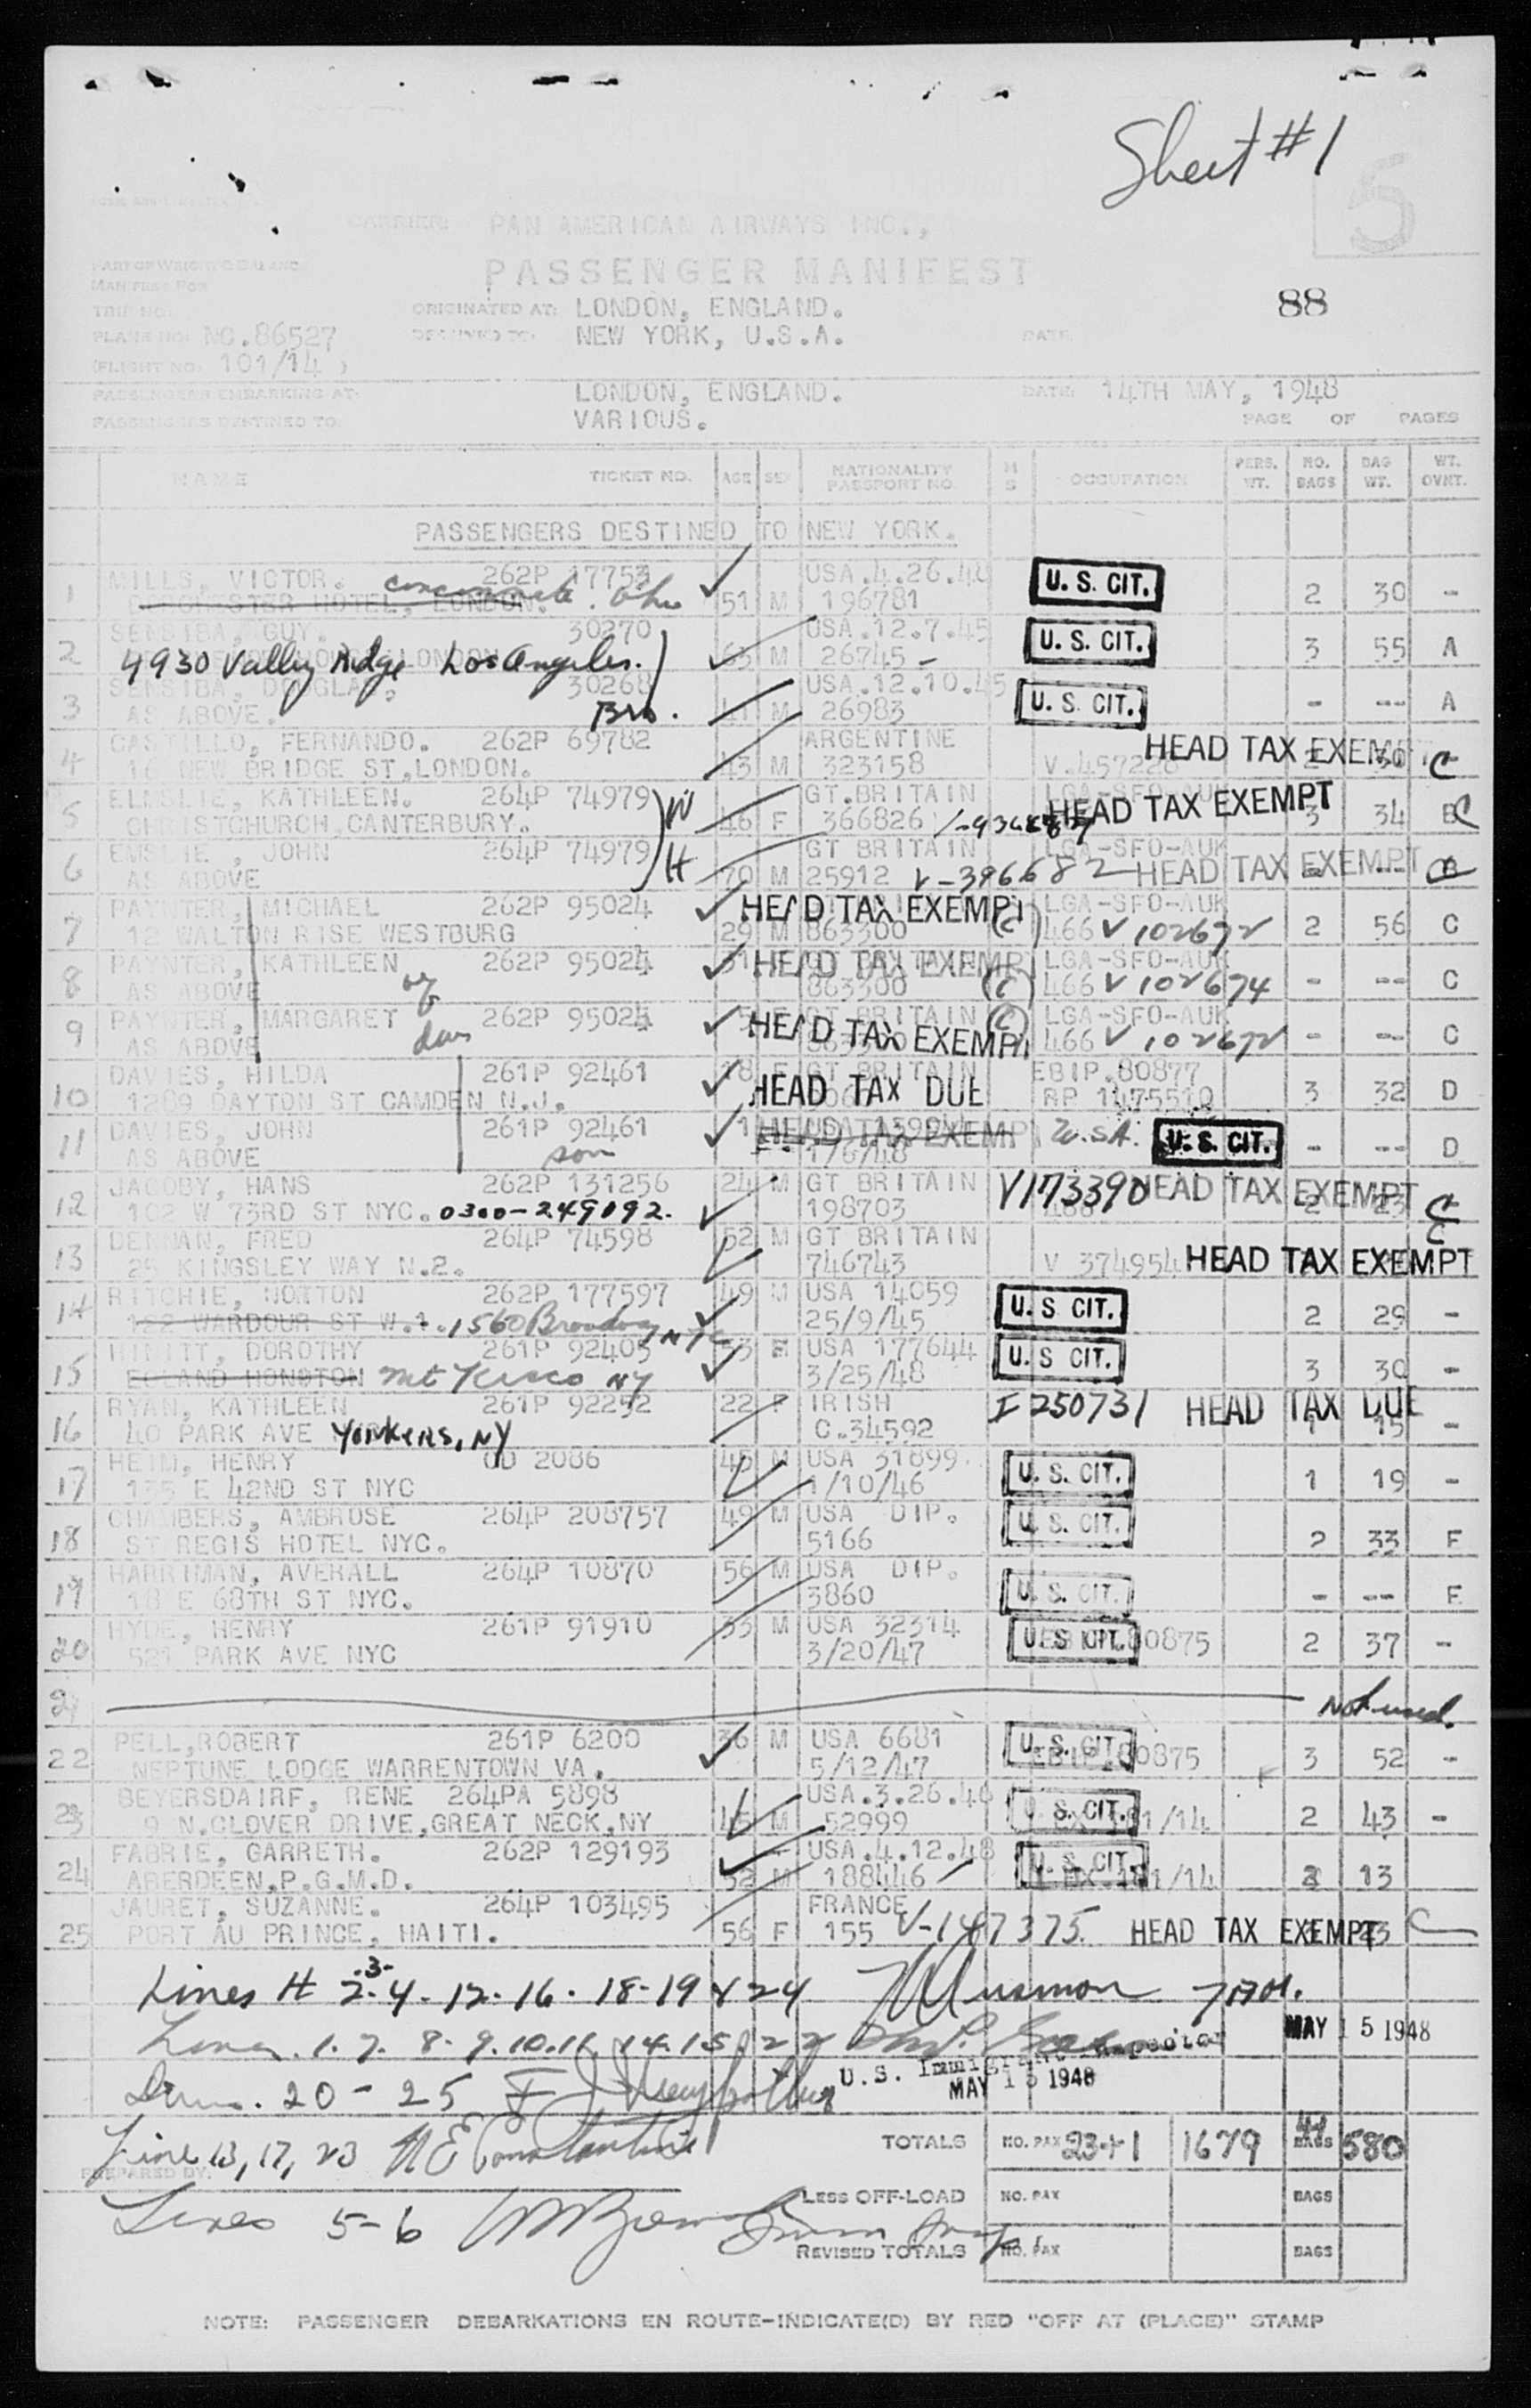 Sheet #1
5
CARRIER: PAN AMERICAN AIRWAYS INC.,
PASSENGER MANIFEST
88
PART OF WEIGHT & BALANCE
MANIFEST FOR
TRIP NO.
ORIGINATED AT: LONDON, ENGLAND.
PLANE NO: NC.86527 DESTINED TO: NEW YORK, U.S.A. DATE
(FLIGHT NO. 101/14 )
PASSENGERS EMBARKING AT: LONDON, ENGLAND. DATE: 14TH MAY, 1948
PASSENGERS DESTINED TO: VARIOUS. PAGE OF PAGES
NAME TICKET NO. AGE SEX NATIONALITY PASSPORT NO. M S OCCUPATION PERS. WT. NO. BAGS BAG WT. WT. OVNT.
PASSENGERS DESTINED TO NEW YORK.
1 MILLS, VICTOR. 262P 17753 USA.4.26.48 U. S. CIT.
HOTEL, LONDON. Ohio 51 M 196781 2 30 -
2 SENSIBA, GUY. 30270 USA.12.7.45 U. S. CIT.
4930 Valley Ridge Los Angeles. 63 M 26745 - 3 55 A
3 SENSIBA, DOUGLAS, 30268 USA.12.10.45 U. S. CIT.
AS ABOVE. Bro. 41 M 26983 - --- A
4 CASTILLO, FERNANDO. 262P 69782 ARGENTINE HEAD TAX EXEMPT
16 NEW BRIDGE ST, LONDON. 43 M 323158 C
5 ELMSLIE, KATHLEEN. 264P 74979 W GT.BRITAIN HEAD TAX EXEMPT
CHRISTCHURCH, CANTERBURY. 46 F 366826 3 34 B C
6 EMSLIE , JOHN 264P 74979 H GT BRITAIN LGA-SFO-AUK
AS ABOVE 70 M 25912 V-396682 HEAD TAX EXEMPT
7 PAYNTER, MICHAEL 262P 95024 HEAD TAX EXEMPT LGA-SFO-AUK
12 WALTON RISE WESTBURG 29 M 863300 (C) 466 V 102672 2 56 C
8 PAYNTER, KATHLEEN 262P 95024 31 HEAD TAX EXEMPT LGA-SFO-AUK
AS ABOVE wf 863300 (C) 466 V 102674 - --- C
9 PAYNTER, MARGARET 262P 95025 5 GT BRITAIN (C) LGA-SFO-AUK
AS ABOVE dau HEAD TAX EXEMPT 466 V 102672 - --- C
10 DAVIES, HILDA 261P 92461 GT BRITAIN EBIP.80877
1289 DAYTON ST CAMDEN N.J. HEAD TAX DUE RP 1475510 3 32 D
11 DAVIES, JOHN 261P 92461 1 HEAD TAX EXEMPT U.S.A. U. S. CIT.
AS ABOVE son 1/6/48 - --- D
12 JACOBY, HANS 262P 131256 24 M GT BRITAIN V173390 HEAD TAX EXEMPT
102 W 73RD ST NYC. 0300-249092. 198703 2 23 C
13 DENNAN, FRED 264P 74598 52 M GT BRITAIN C
25 KINGSLEY WAY N.2. 746743 V 374954 HEAD TAX EXEMPT
14 RITCHIE, NORTON 262P 177597 49 M USA 14059 U. S CIT.
122 WARDOUR ST W.1. 1560 Broadway NYC 25/9/45 2 29 -
15 DOROTHY 261P 92405 53 F USA 177644 U. S CIT.
Mt Kisco NY 3/25/48 3 30 -
16 RYAN, KATHLEEN 261P 92252 22 F IRISH I 250731 HEAD TAX DUE
40 PARK AVE Yonkers, NY C.34592 1 15 -
17 HEIM, HENRY OD 2086 45 M USA 31899 U. S. CIT.
135 E 42ND ST NYC 1/10/46 1 19 -
18 CHAMBERS, AMBROSE 264P 208757 49 M USA DIP. U. S. CIT.
ST REGIS HOTEL NYC. 5166 2 33 F
19 HARRIMAN, AVERALL 264P 10870 56 M USA DIP. U. S. CIT.
18 E 68TH ST NYC. 3860 - --- F
20 HYDE, HENRY 261P 91910 33 M USA 32314 U. S CIT.
521 PARK AVE NYC 3/20/47 80875 2 37 -
21 Not used.
22 PELL, ROBERT 261P 6200 36 M USA 6681 U. S. CIT.
NEPTUNE LODGE WARRENTOWN VA. 5/12/47 EBIP.80875 3 52 -
23 BEYERSDAIRF, RENE 264PA 5898 USA.3.26.46 U. S. CIT.
9 N.CLOVER DRIVE, GREAT NECK, NY 45 M 52999 2 43 -
24 FABRIE, GARRETH. 262P 129193 USA.4.12.48 U. S. CIT.
ABERDEEN, P.G.M.D. 52 M 188446 13
25 JAURET, SUZANNE. 264P 103495 FRANCE
PORT AU PRINCE, HAITI. 56 F 155 V-147375. HEAD TAX EXEMPT C
Lines # 2-3-4-12-16-18-19 & 24
Lines 1. 7. 8-9.10.11. 14.15 22
U. S. Immigrant Inspector MAY 15 1948
MAY 15 1948
20-25
Line 13, 17, 23
TOTALS NO. PAX 23+1 1679 BAGS 580
PREPARED BY:
LESS OFF-LOAD NO. PAX BAGS
Lines 5-6
REVISED TOTALS NO. PAX BAGS
NOTE: PASSENGER DEBARKATIONS EN ROUTE-INDICATE(D) BY RED "OFF AT (PLACE)" STAMP